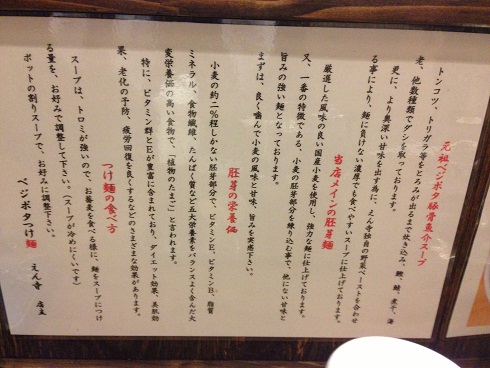 元祖ベジポタ豚骨魚介スープ
トンコツ、トリガラ等をとろみが出るまで炊き込み、鰹、鯖、煮干、海
老、他数種類でダシを取っております。
更に、より奥深い甘味を出す為に、えん寺独自の野菜ペーストを合わせ
る事により、麺に負けない濃厚でも食べやすいスープに仕上げております。
当店メインの胚芽麺
厳選した風味の良い国産小麦を使用し、強力な麺に仕上げております。
又、一番の特徴である、小麦の胚芽部分を練り込む事で、他にない甘味と
旨みの強い麺となっております。
まずは、良く噛んで小麦の風味と甘味、旨みを実感下さい。
胚芽の栄養価
小麦の約二%程しかない胚芽部分で、ビタミンE、ビタミンB、脂質
ミネラル、食物繊維、たんぱく質など五大栄養素をバランスよく含んだ大
変栄養価の高い食物で、「植物のたまご」と言われます。
特に、ビタミンB群とEが豊富に含まれており、ダイエット効果、美肌効
果、老化の予防、疲労回復を良くするなどのさまざまな効果があります。
つけ麺の食べ方
スープは、トロミが強いので、お蕎麦を食べる様に、麺をスープにつけ
る量を、お好みで調整して下さい。(スープが冷めにくいです)
ポットの割りスープで、お好みで調整下さい。
ベジポタつけ麺 えん寺 店主